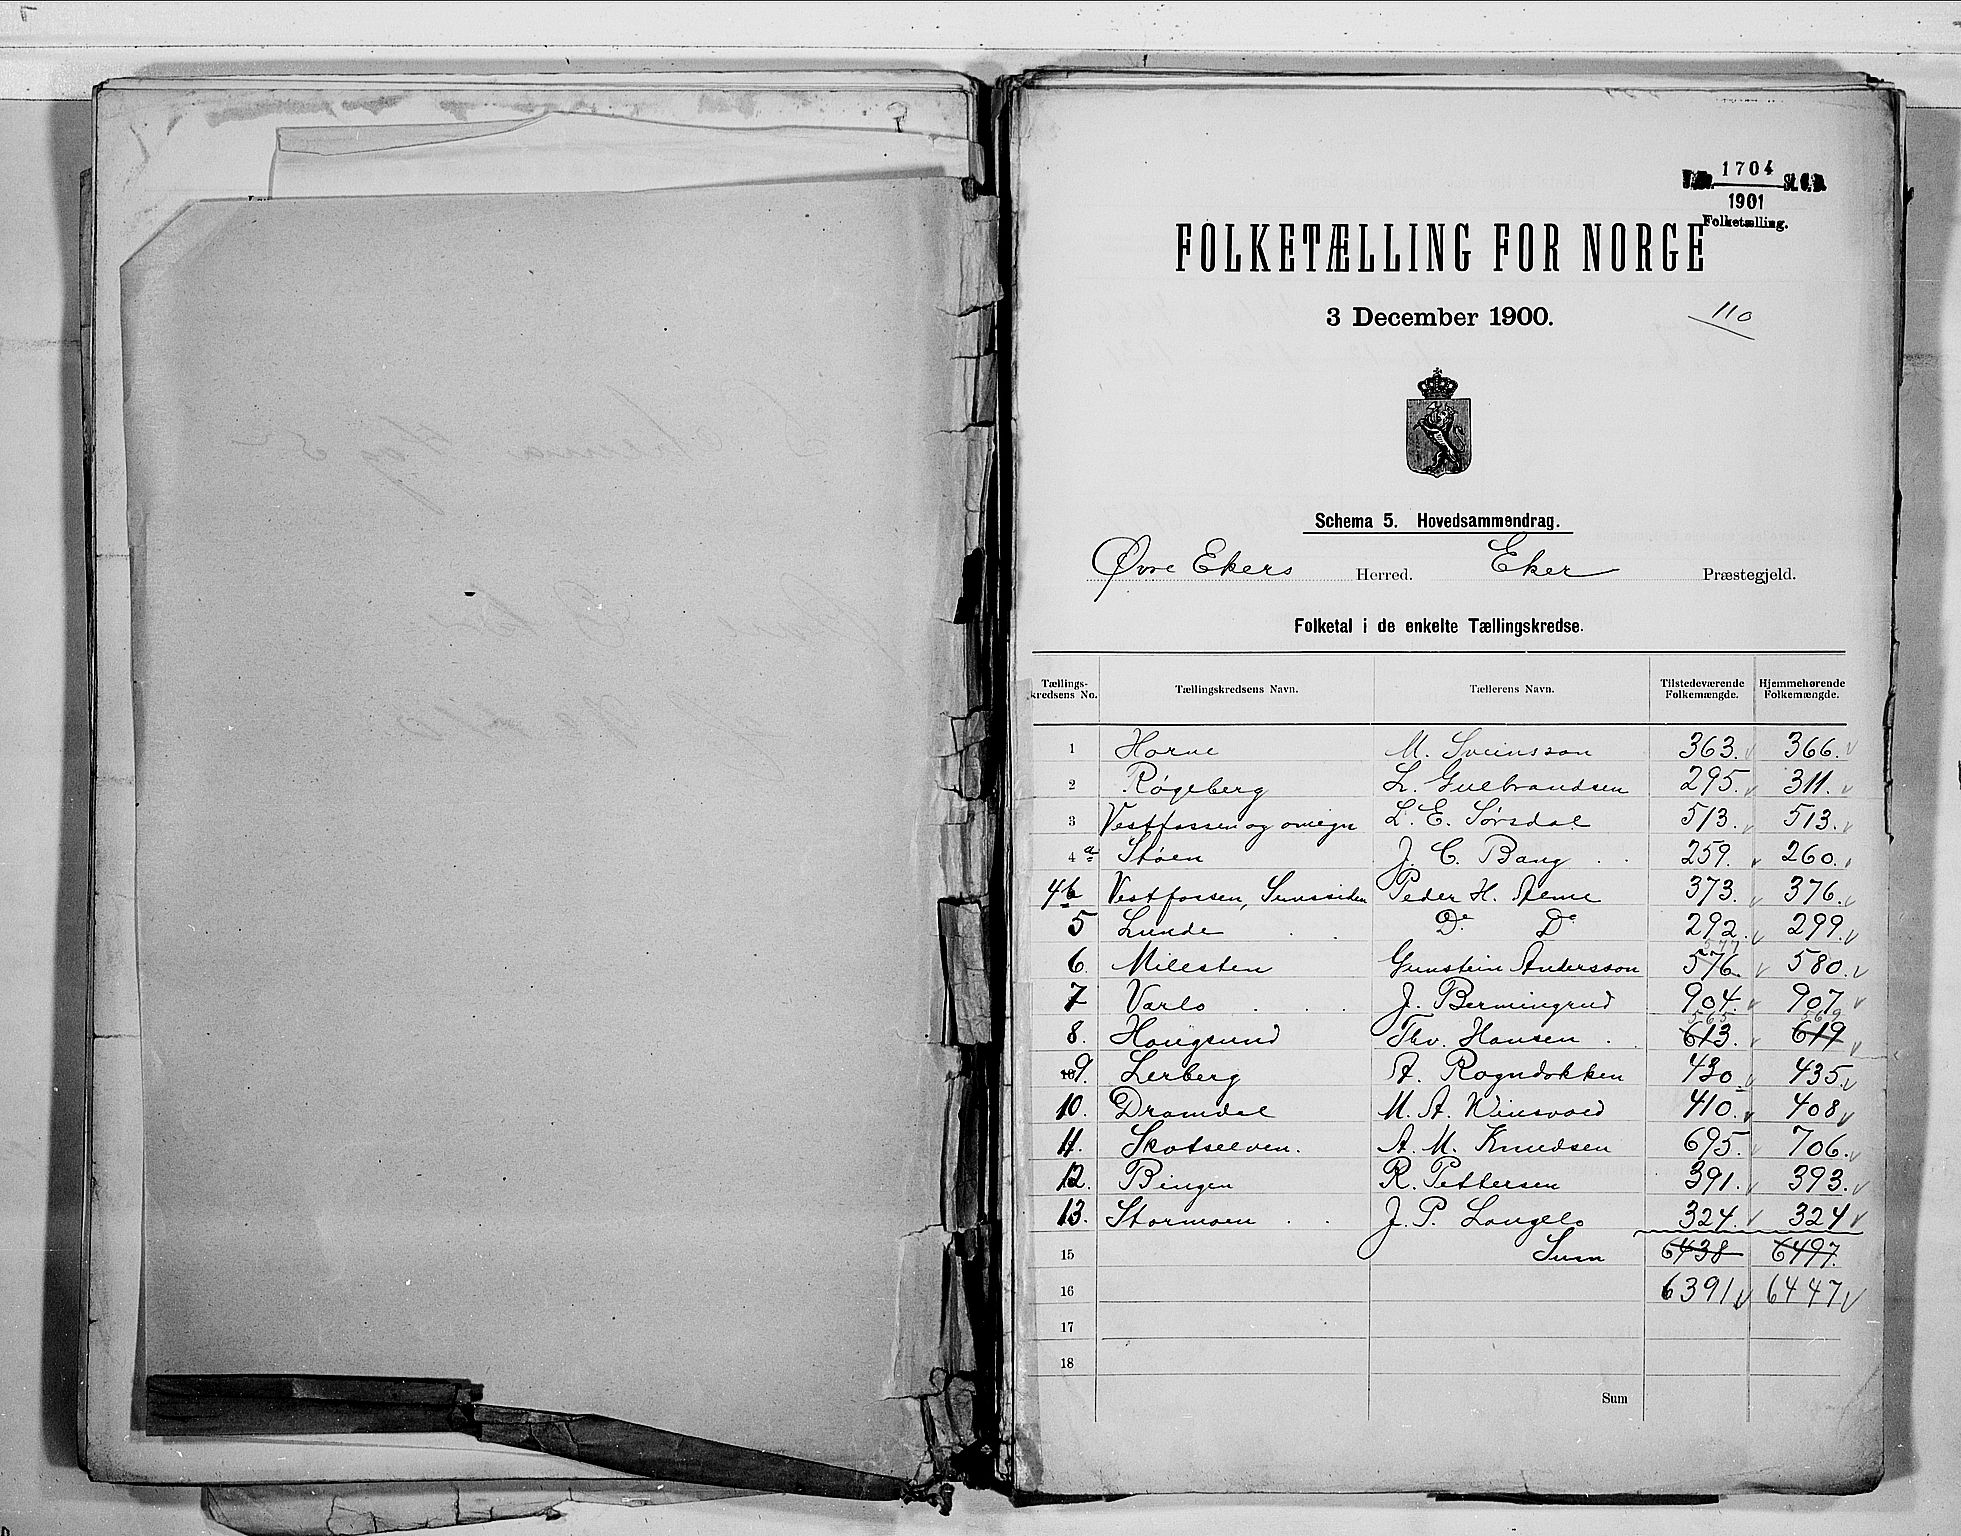 1704
1901
Folketælling.
FOLKETÆLLING FOR NORGE
3 December 1900.
110
Schema 5. Hovedsammendrag.
Øvre Ekers Herred. Eker Præstegjeld.
Folketal i de enkelte Tællingskredse.
Tællings-kredsens No. Tællingskredsens Navn. Tællerens Navn. Tilstedeværende Folkemængde. Hjemmehørende Folkemængde.
1 Horne M. Sveinsson 363. 366.
2 Røgeberg L. Gulbrandsen 295. 311.
3 Vestfossen og omegn L. E. Sørsdal 513. 513.
4 a Støen J. C. Bang 259. 260.
4b Vestfossen, Sunssiden Peder H. 373. 376.
5 Lunde Do Do 292. 299.
6. Milesten Gunstein Andersson 576. 577 580.
7 Varlo J. Bermingrud 904 907
8. Hougsund Thv. Hansen 613. 565 619 569
10 9. Lerberg A. Rogndokken 430 435.
10. Dramdal M. A. Winsvold 410. 408
11. Skotselven. A. M. Knudsen 695. 706.
12. Bingen R. Pettersen 391. 393.
13. Stormoen J. P. Langelo 324. 324
15 Sum 6438 6497.
16 6391 6447
17
18
Sum